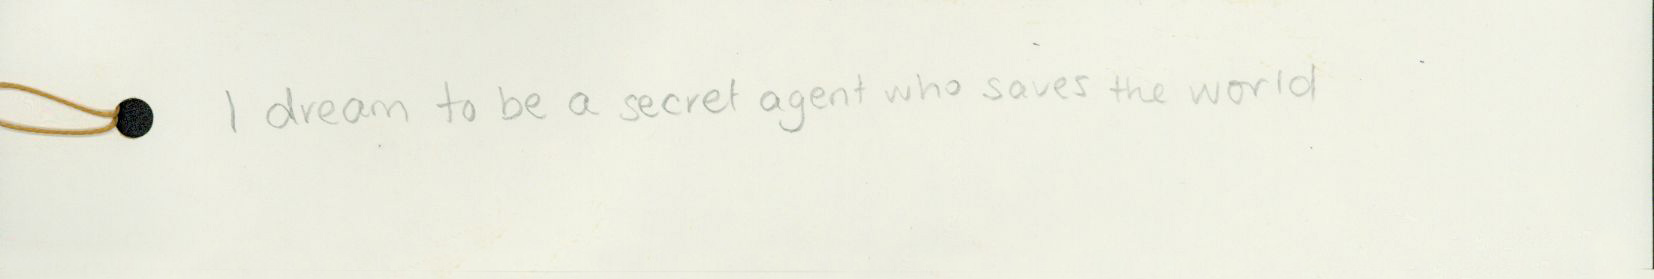 I dream to be a secret agent who saves the world